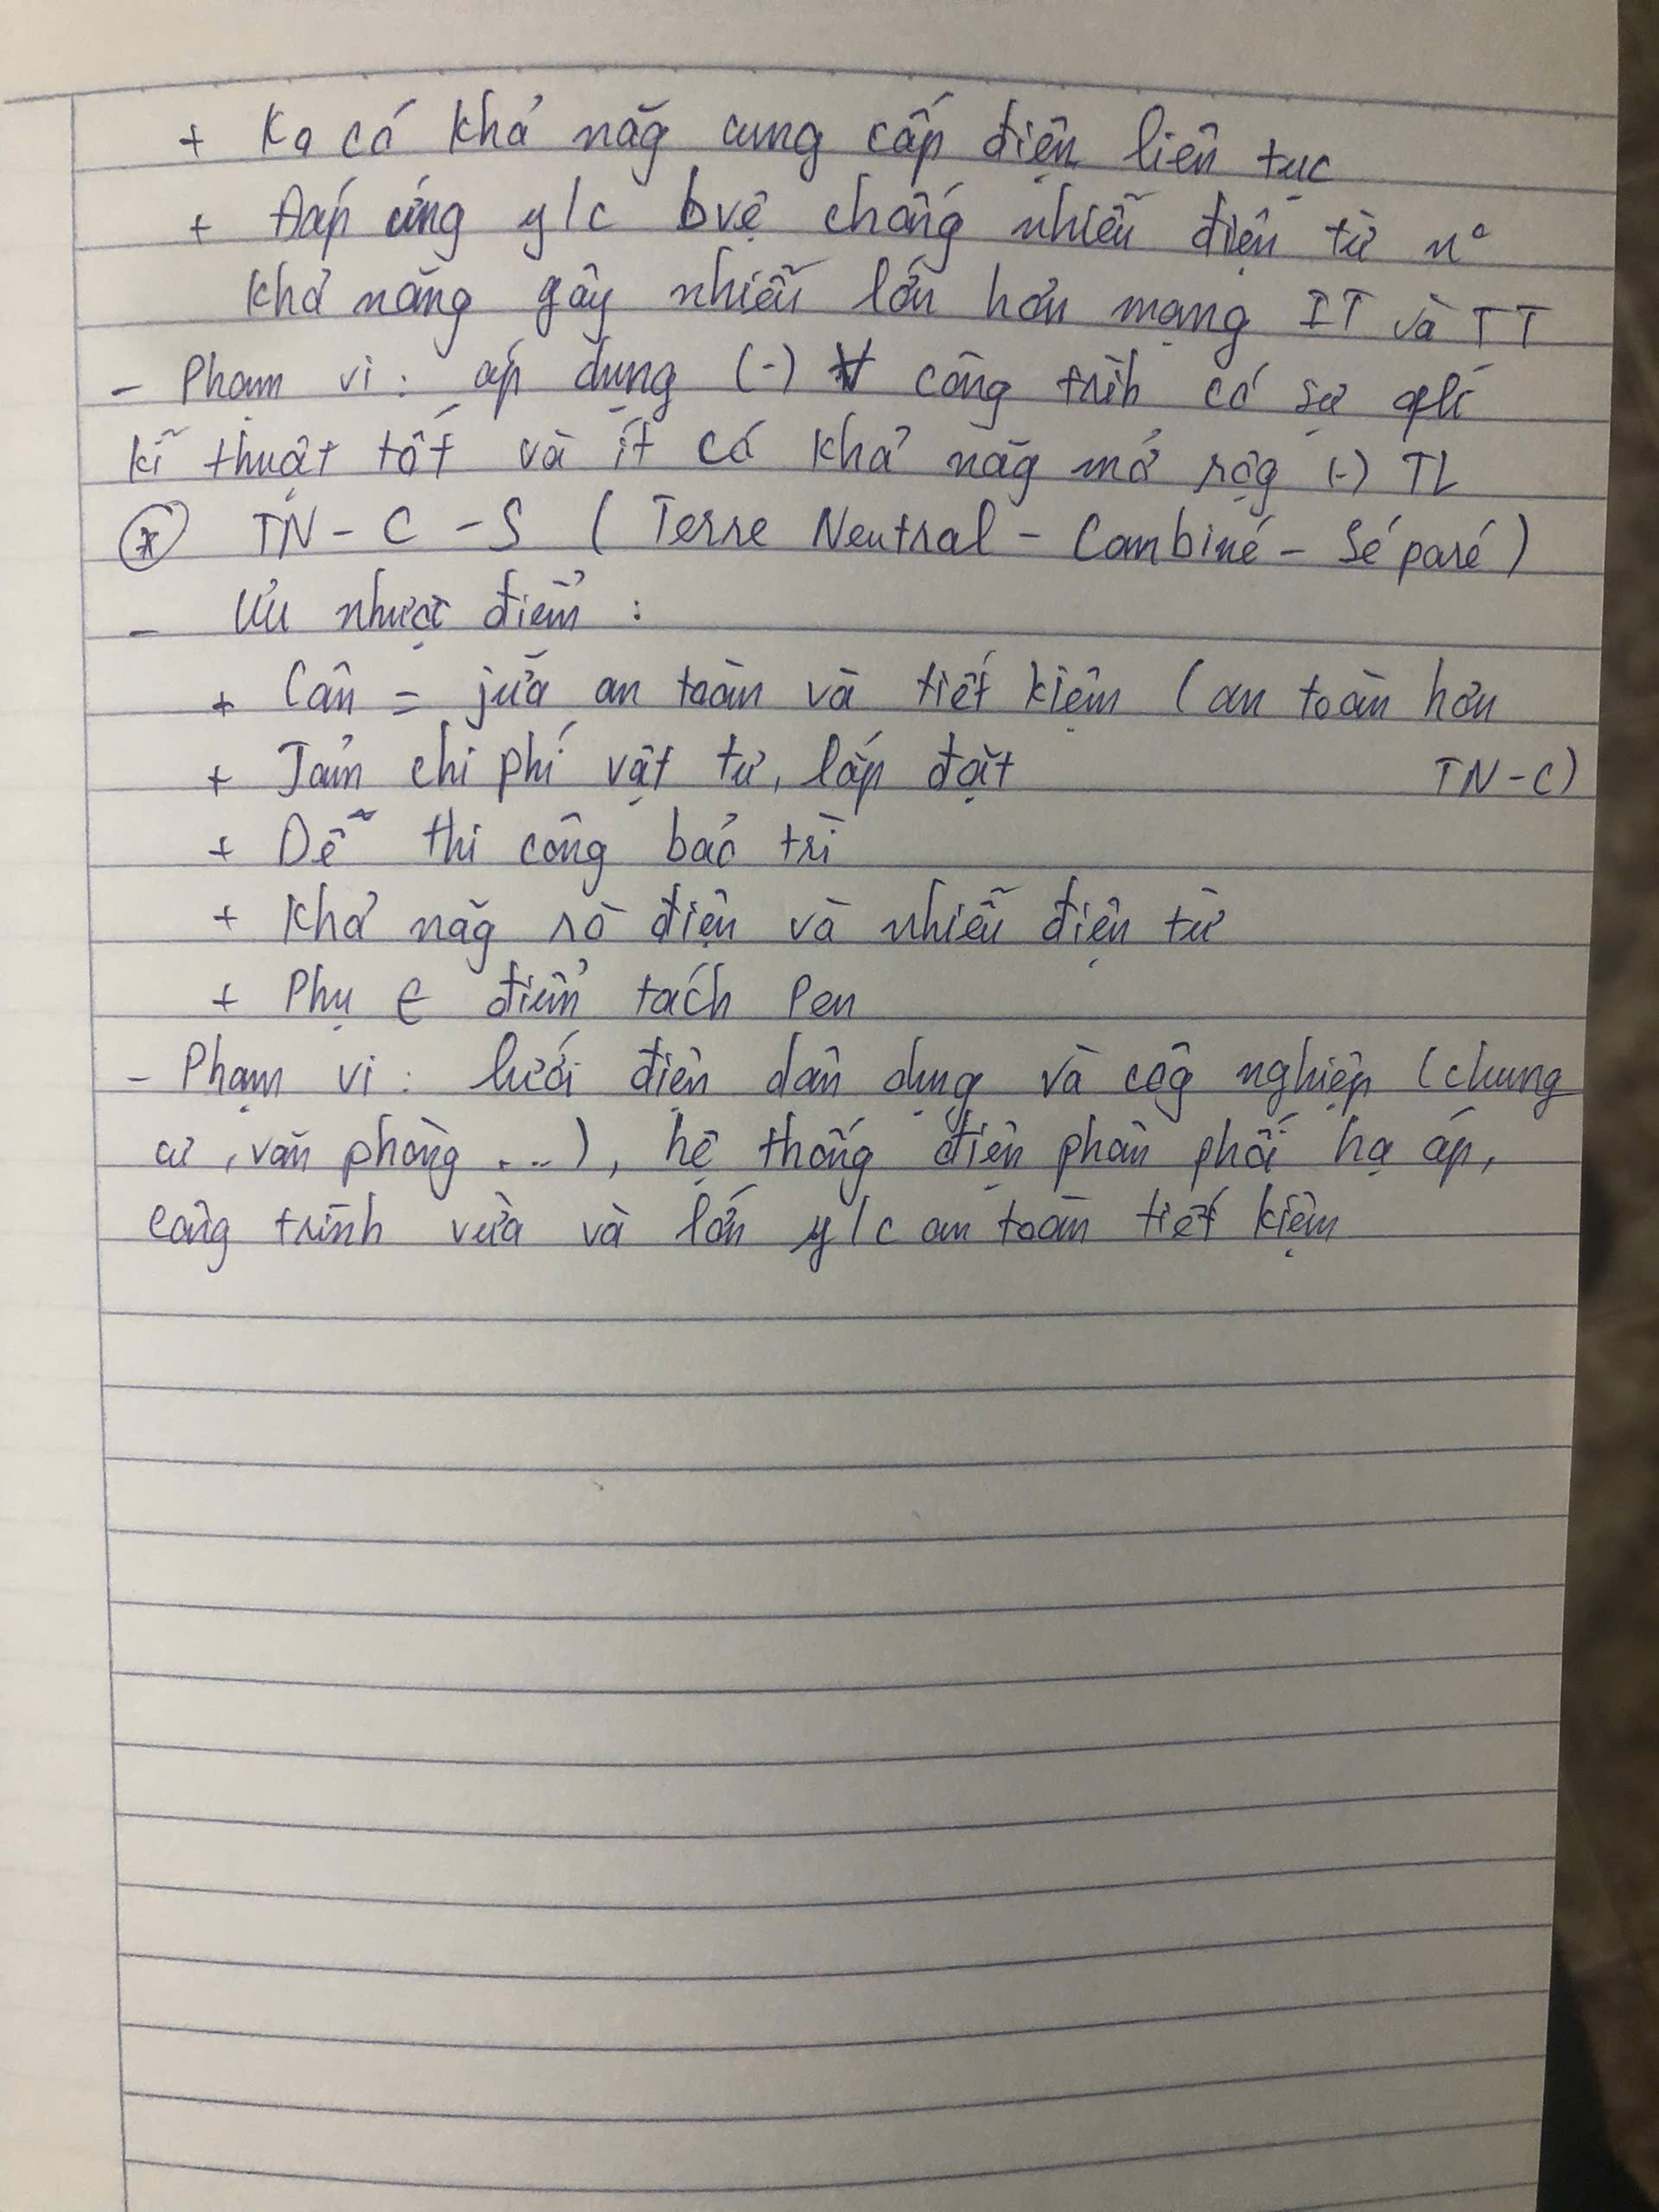 + Ko có khả năg cung cấp điện liên tục
+ Đáp ứng y/c bvệ chống nhiễu điện từ n°
khả năng gây nhiễu lớn hơn mạng IT và TT
- Phạm vi : áp dụng (-) ∀ công trìh có sự qlí
kĩ thuật tốt và ít có khả năg mở rộg (-) TL
* TN - C - S ( Terre Neutral - Combiné - Séparé )
- Ưu nhược điểm :
+ Cân = jữa an toàn và tiết kiệm ( an toàn hơn
+ Jảm chi phí vật tư, lắp đặt TN-C)
+ Dễ thi công bảo trì
+ Khả năg rò điện và nhiễu điện từ
+ Phụ ∈ điểm tách Pen
- Phạm vi : lưới điện dân dụng và côg nghiệp (chung
cư, văn phòng ...), hệ thống điện phân phối hạ áp,
công trình vừa và lớn y/c an toàn tiết kiệm